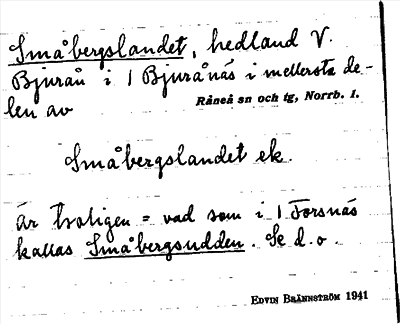 Småbergslandet, hedland V.
Bjurån i 1 Bjurånäs i mellersta de-
len av
Råneå sn och tg, Norrb. l.
Småbergslandet ek.
Är troligen = vad som i 1 Forsnäs
kallas Småbergsudden. Se d.o.
EDVIN BRÄNNSTRÖM 1941